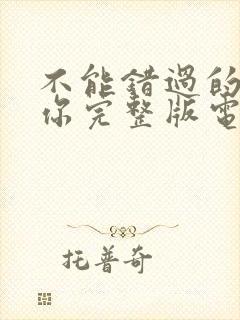 不能错過的
你完整版電
托普奇